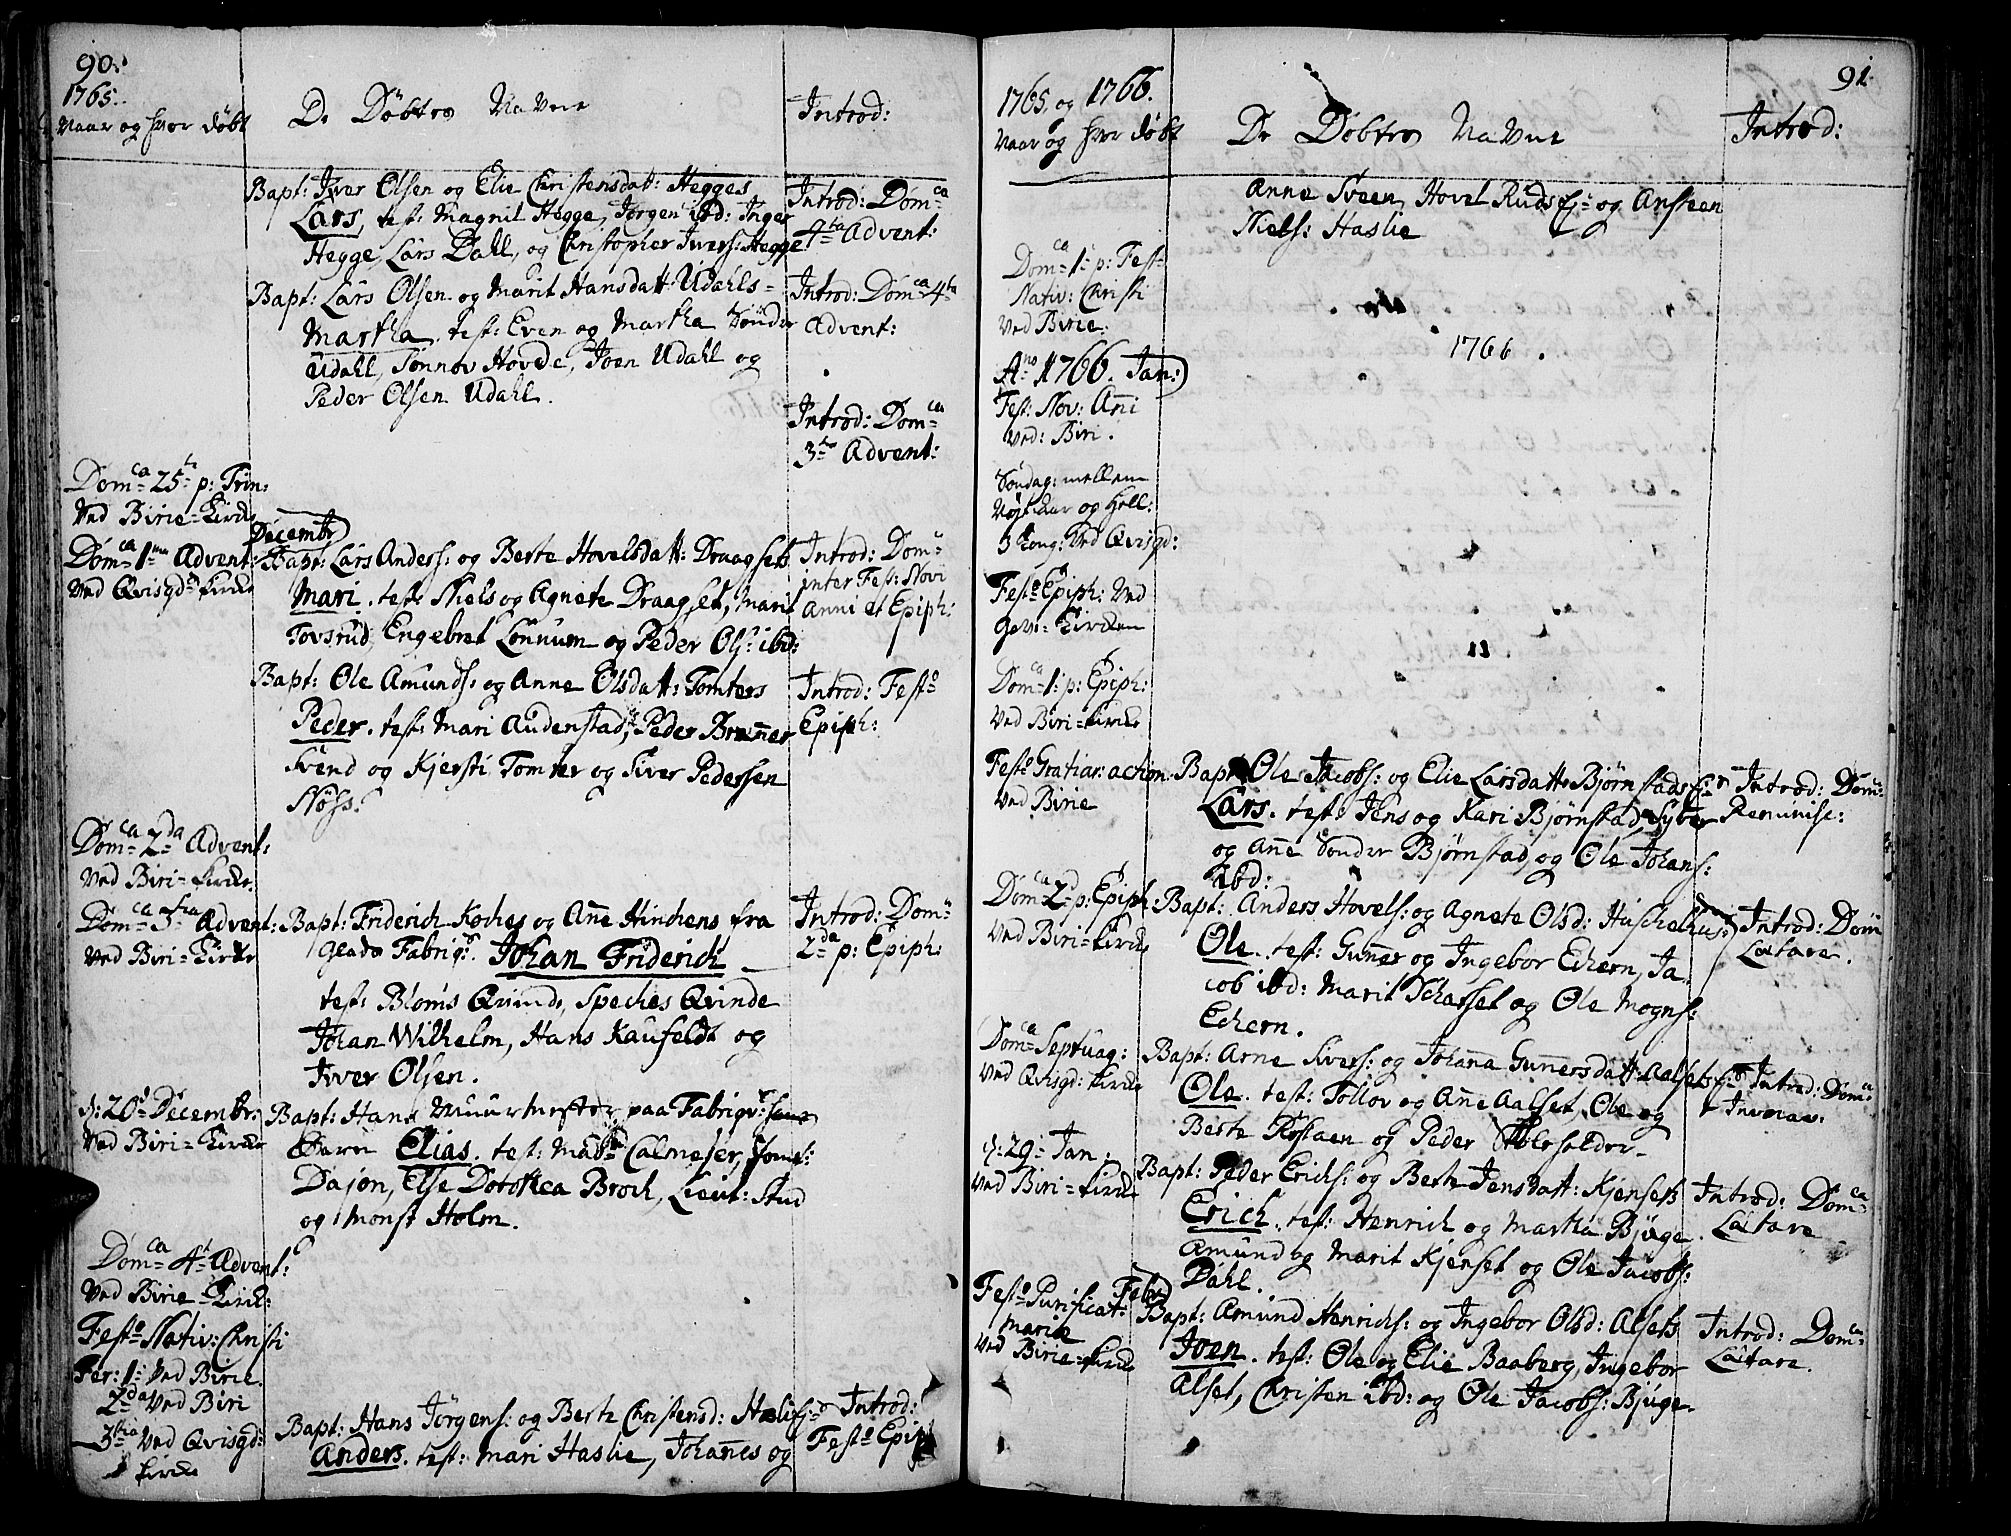 90.
1765.
Naar og hvor døbt
De Døbtes Navne
Introd:
Bapt: Iver Olsen og Elie Christensdatt: Hegges
Lars, test: Magnil Hegge, Jørgen ibd: Inger
Hegge, Lars Dahl, og Christopher Ivers: Hegge
Introd: Domca
4ta Advent:
Bapt: Lars Olsen og Marit Hansdatt: Udahls
Martha. test: Even og Martha Sønder
Udahl, Sønnov Hovde, Joen Udahl og
Peder Olsen Udahl.
Introd: Domca 4ta
Advent:
Introd: Domca
3tia Advent:
Domca 25ta p: Trin:
Ved Birie-Kirke
Decembr
Domca 1ma Advent:
Ved Qvisgds Kirke
Bapt: Lars Anders: og Berte Hovelsdatt: Draagsets
Mari. test: Niels og Agnete Draagset, Mari
Tovsrud, Engebret Lønnum og Peder Ols: ibd:
Introd: Dom
inter Fest: Novi
Anni et Epiph:
Bapt: Ole Amunds: og Anne Olsdatt: Tomters
Peder. test: Mari Audenstad, Peder Brenner
Svend og Kjersti Tomter og Siver Pedersen
Nøss:
Introd: Festo
Epiph:
Domca 2da Advent:
Ved Biri-Kirke
Domca 3tia Advent:
Ved Biri-Kirke
Bapt: Friderich Koches og Anne Hinchens fra
Glads Fabriq: Johan Friderich
test: Bloms Qvinde, Speches Qvinde
Johan Wilhelm, Hans Kaufeldt og
Iver Olsen.
Introd: Dom
2da p: Epiph:
d: 20 Decembr:
Ved Biri-Kirke
Bapt: Hans Muurmester paa Fabriqv:
Barn Elias. test: Mad: Calmeier, Jomf:
Dajon, Else Dorothea Broch, Lieut: Stud
og Monsr Holm.
Domca 4ta Advent:
Ved Birie-Kirch:
Festo Nativ: Christi
Fer: 1: Ved Birie.
2da Ved Biri
3tia Ved Qvisgd:
Kirke
Bapt: Hans Jørgens: og Berte Christensd: Haslie
Anders. test: Mari Haslie, Johannes og
Introd:
Festo Epiph

91
1765, og 1766.
Naar og hvor døbt
De Døbtes Navne
Introd:
Anne Sveen, Hovel Ruds Ej: og Ansteen
Niels: Haslie
Domca 1: p: Fest
Nativ: Christi
Ved Birie.
1766.
Ano 1766. Jan:
Fest: Nov: Anni
Ved: Biri.
Søndag: mellem
Nyt Aar og Hell:
3 Kong: Ved Qvisgd:
Festo Epiph: Ved
Kircken
Domca 1: p: Epiph:
Ved Biri-Kirke
Festo Gratiar: action
Ved Birie
Bapt: Ole Jacobs: og Elie Larsdatt: Bjørnstads Ej:
Lars. test: Jens og Kari Bjørnstad, Syver
og Anne Sonder Bjørnstad og Ole Johans:
ibd:
Introd: Dom:
Reminisc:
Domca 2d p: Epiph:
Ved Biri-Kirke
Bapt: Anders Hovels: og Agnete Olsd: Huschelhus:
Ole. test: Gunner og Ingebor Echern, Ja
cob ibd: Marit Scharset og Ole Mogns:
Echern.
Introd: Dom
Lætare.
Domca Septuag:
Ved Qvisgd: Kirke
Bapt: Arne Sivers: og Johanna Gunnersdatt: Aalsets Ej:
Ole. test: Tollov og Anne Aalset, Ole og
Berte Røstaen og Peder
Introd: Domca
Invocav:
d: 29 Jan:
Ved Biri-Kirke
Bapt: Peder Erichs: og Berte Jensdatt: Kjensets
Erich. test: Henrich og Martha Bjuge.
Amund og Marit Kjenset og Ole Jacobs:
Dahl.
Introd: Domca
Lætare
Febr
Festo Purificat:
Mariæ
Ved Birie-Kirke
Bapt: Amund Henrichs: og Ingebor Olsd: Alsets
Joen. test: Ole og Elie Baaberg, Ingebor
Alset, Christen ibd: og Ole Jacobs: Bjuge.
Introd: Domca
Lætare.